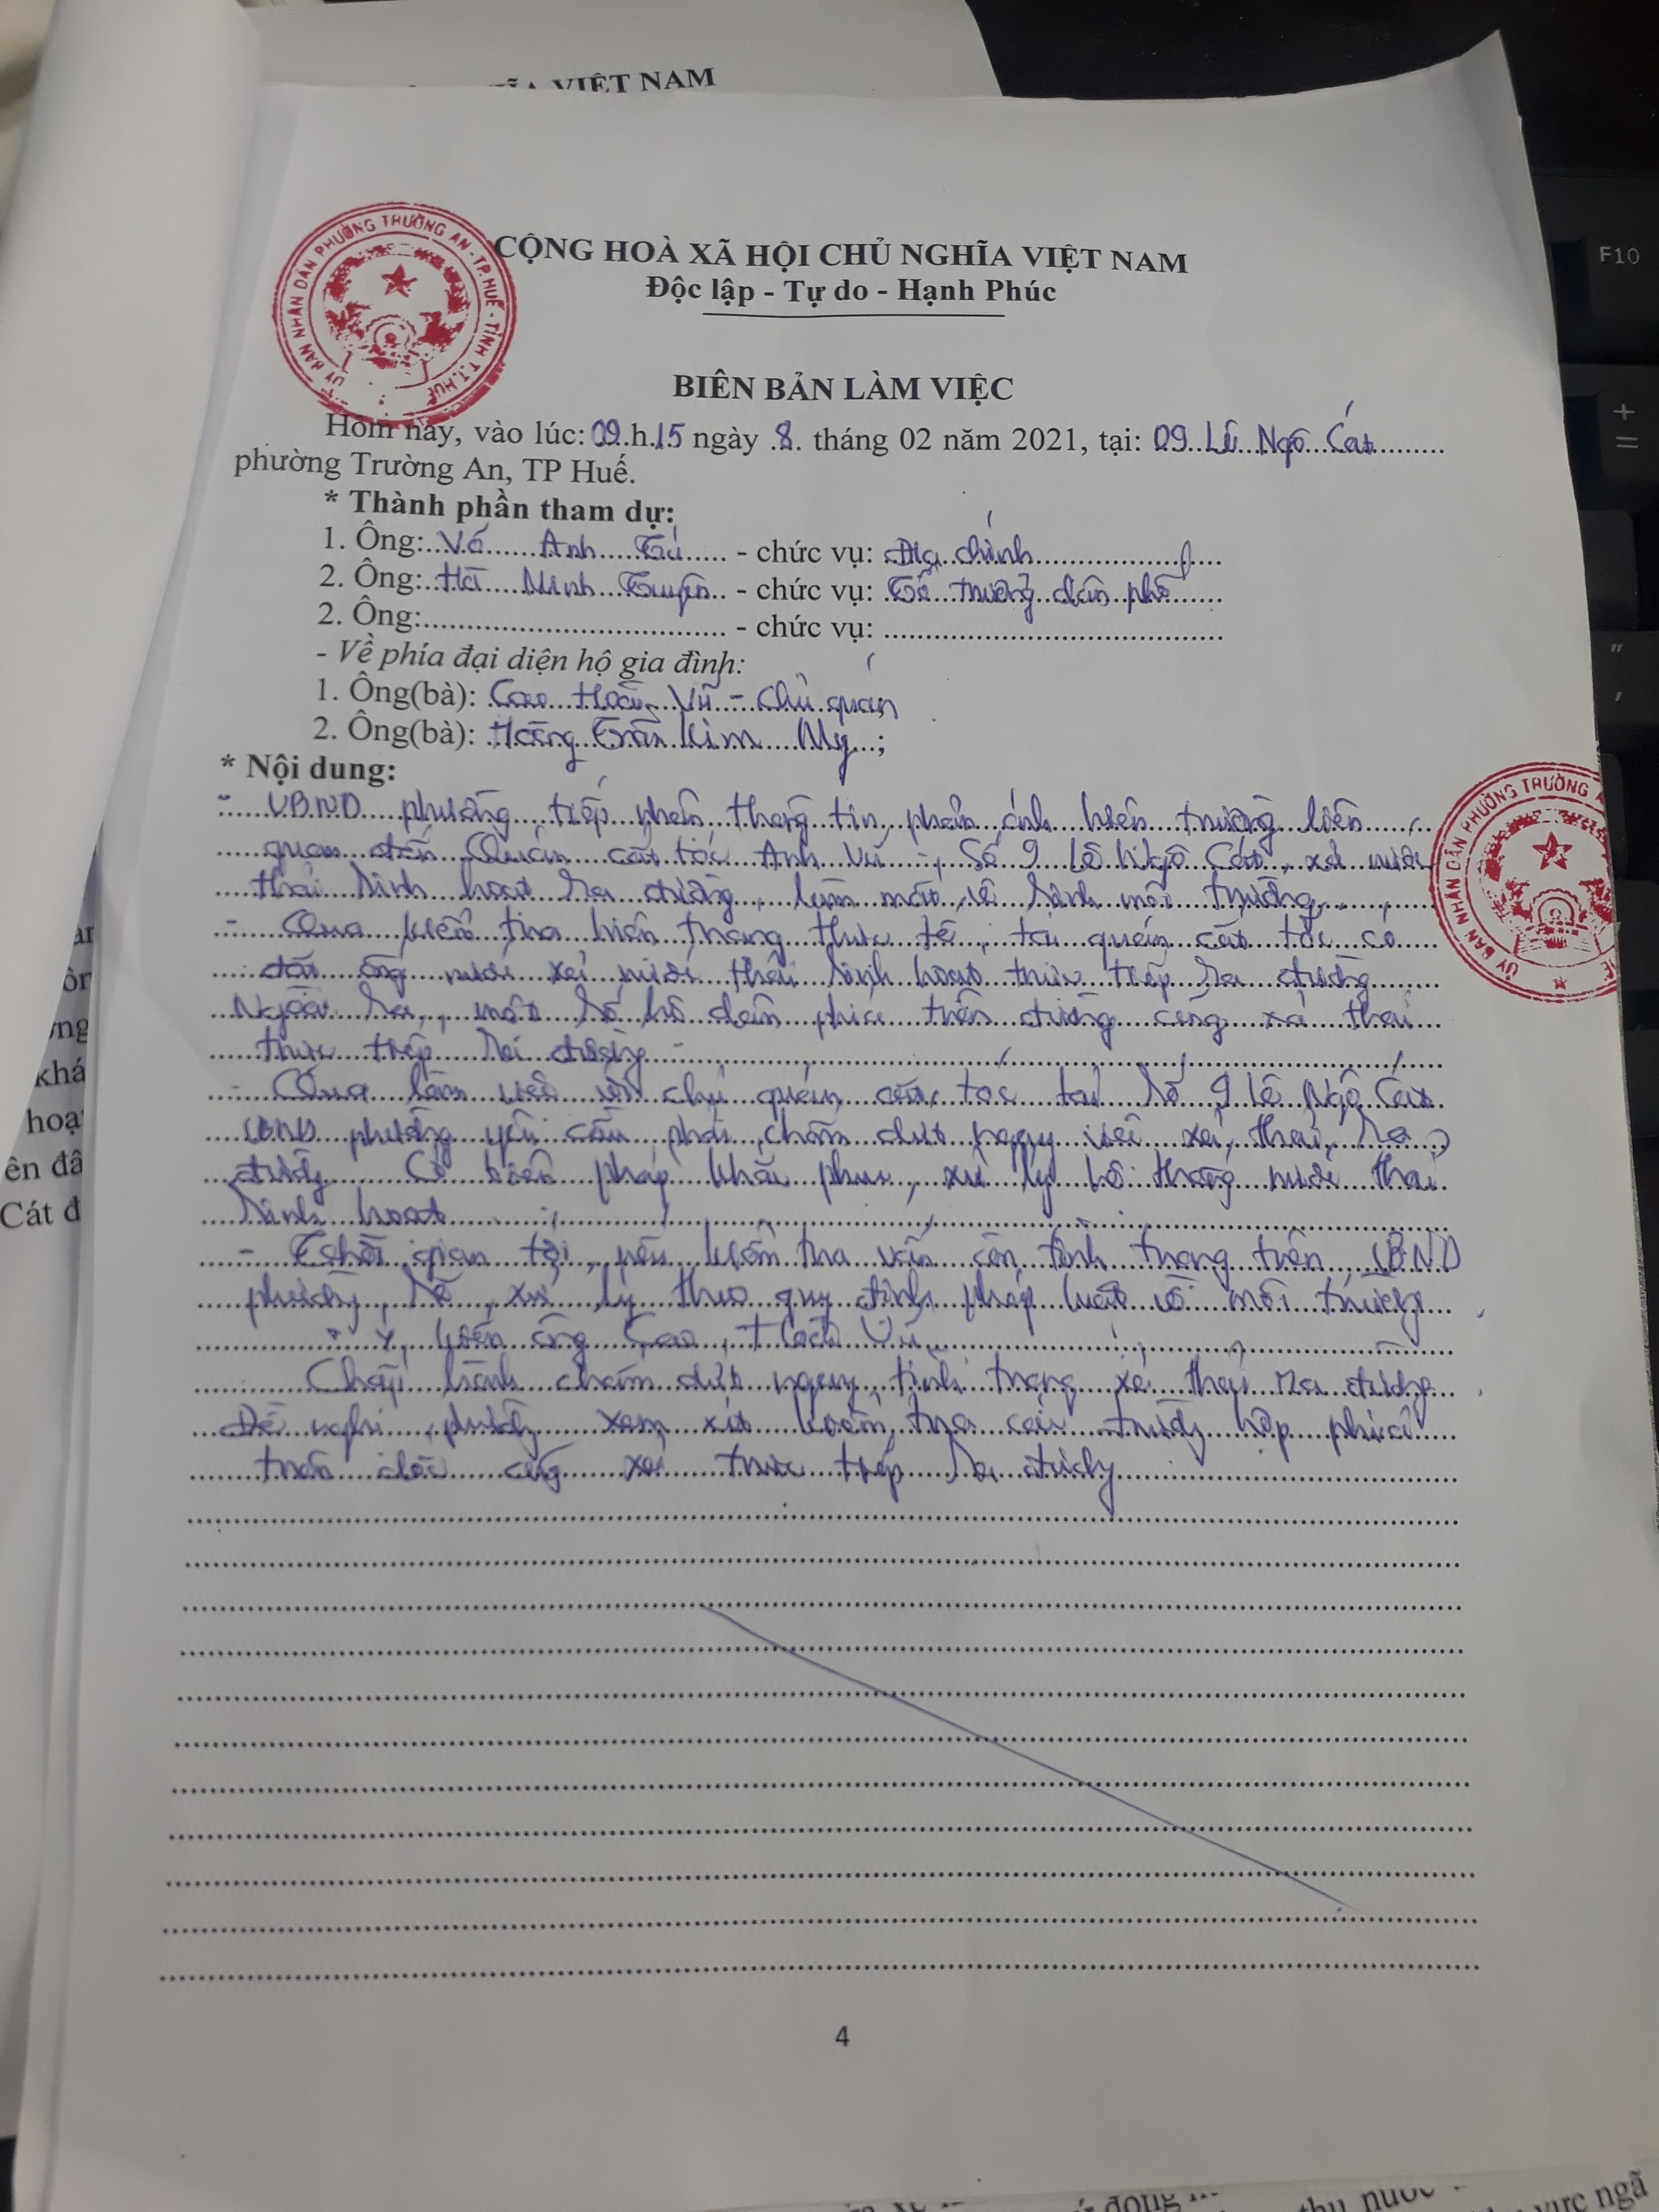 VIỆT NAM
ỦY BAN NHÂN DÂN PHƯỜNG TRƯỜNG AN - TP.HUẾ - TỈNH T.T.HUẾ
CỘNG HOÀ XÃ HỘI CHỦ NGHĨA VIỆT NAM
Độc lập - Tự do - Hạnh Phúc
BIÊN BẢN LÀM VIỆC
Hôm nay, vào lúc: 09.h.15 ngày 8 tháng 02 năm 2021, tại: 09 Lê Ngô Cát
phường Trường An, TP Huế.
* Thành phần tham dự:
1. Ông: Võ Anh Tú - chức vụ: Địa chính
2. Ông: Hà Minh Truyền - chức vụ: Tổ trưởng dân phố
2. Ông: - chức vụ:
- Về phía đại diện hộ gia đình:
1. Ông(bà): Cao Hoài Vũ - Chủ quán
2. Ông(bà): Hoàng Trần Kim My ;
* Nội dung:
- UBND phường tiếp nhận thông tin phản ánh hiện trường liên
quan đến Quán cắt tóc Anh Vũ - Số 9 Lê Ngô Cát, xả nước
thải sinh hoạt ra đường, làm mất vệ sinh môi trường
- Qua kiểm tra hiện trạng thực tế, tại quán cắt tóc có
đặt ống nước xả nước thải sinh hoạt trực tiếp ra đường
Ngoài ra, một số hộ dân phía trên đường cũng xả thải
trực tiếp ra đường -
- Qua làm việc với chủ quán cắt tóc tại số 9 Lê Ngô Cát
UBND phường yêu cầu phải chấm dứt ngay việc xả thải ra
đường. Có biện pháp khắc phục, xử lý hệ thống nước thải
sinh hoạt
- Thời gian tới, nếu kiểm tra vẫn còn tình trạng trên UBND
phường sẽ xử lý theo quy định pháp luật về môi trường
* Ý kiến ông Cao Hoài Vũ
Chấp hành chấm dứt ngay tình trạng xả thải ra đường
Đề nghị phường xem xét kiểm tra các trường hợp phía
trên dốc cũng xả trực tiếp ra đường
ỦY BAN NHÂN DÂN PHƯỜNG TRƯỜNG
4
khá
hoạ
ên đâ
Cát đ
F10